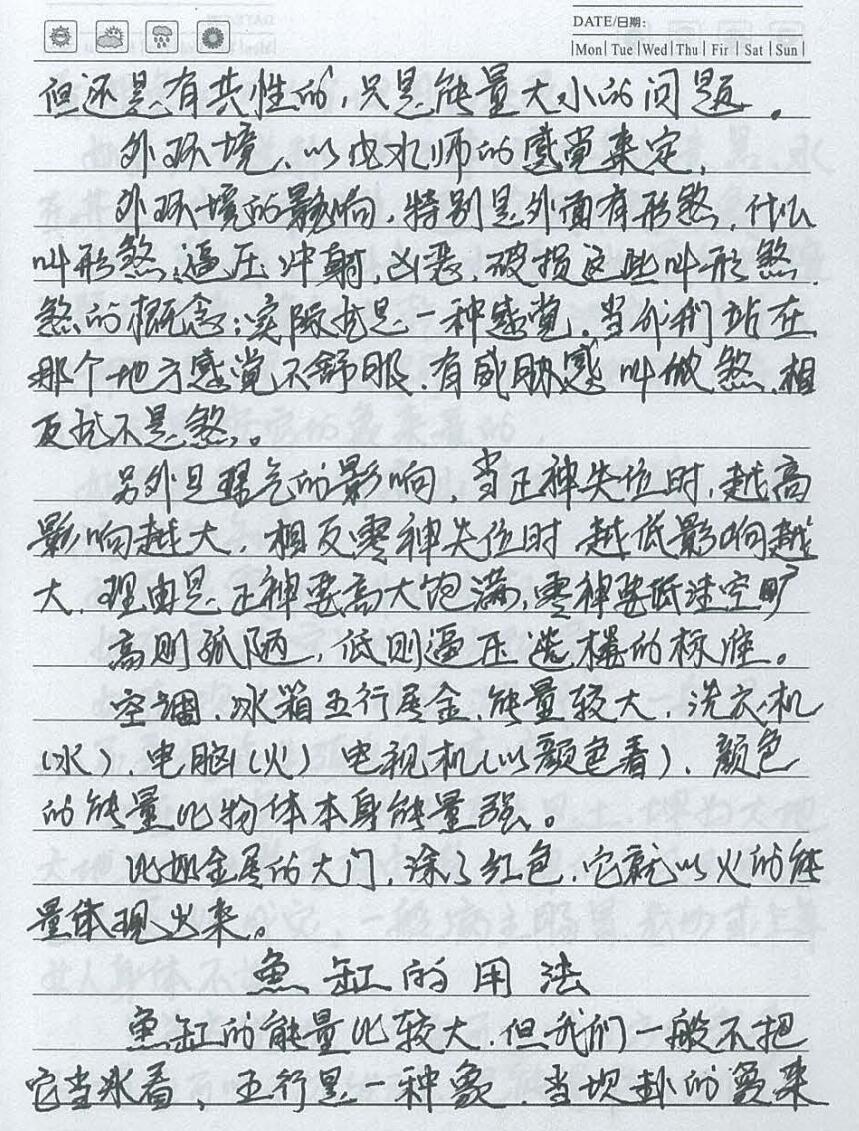 DATE/日期:
Mon Tue Wed Thu Fir Sat Sun
但还是有共性的,只是能量大小的问题。
外环境,以风水师的感觉来定,
外环境的影响,特别是外面有形煞,什么
叫形煞,逼压冲射,凶恶,破损这些叫形煞,
煞的概念:实际就是一种感觉,当我们站在
那个地方感觉不舒服,有威胁感叫做煞,相
反就不是煞。
另外是理气的影响,当正神失位时,越高
影响越大,相反零神失位时,越低影响越
大,理由是正神要高大饱满,零神要低洼空旷
高则孤陋,低则逼压选择的标准。
空调、冰箱五行属金,能量较大,洗衣机
(水),电脑(火)电视机(以颜色看),颜色
的能量比物体本身能量强。
比如金属的大门,涂了红色,它就以火的能
量体现出来。
鱼缸的用法
鱼缸的能量比较大,但我们一般不把
它当水看,五行是一种象,当坎卦的象来